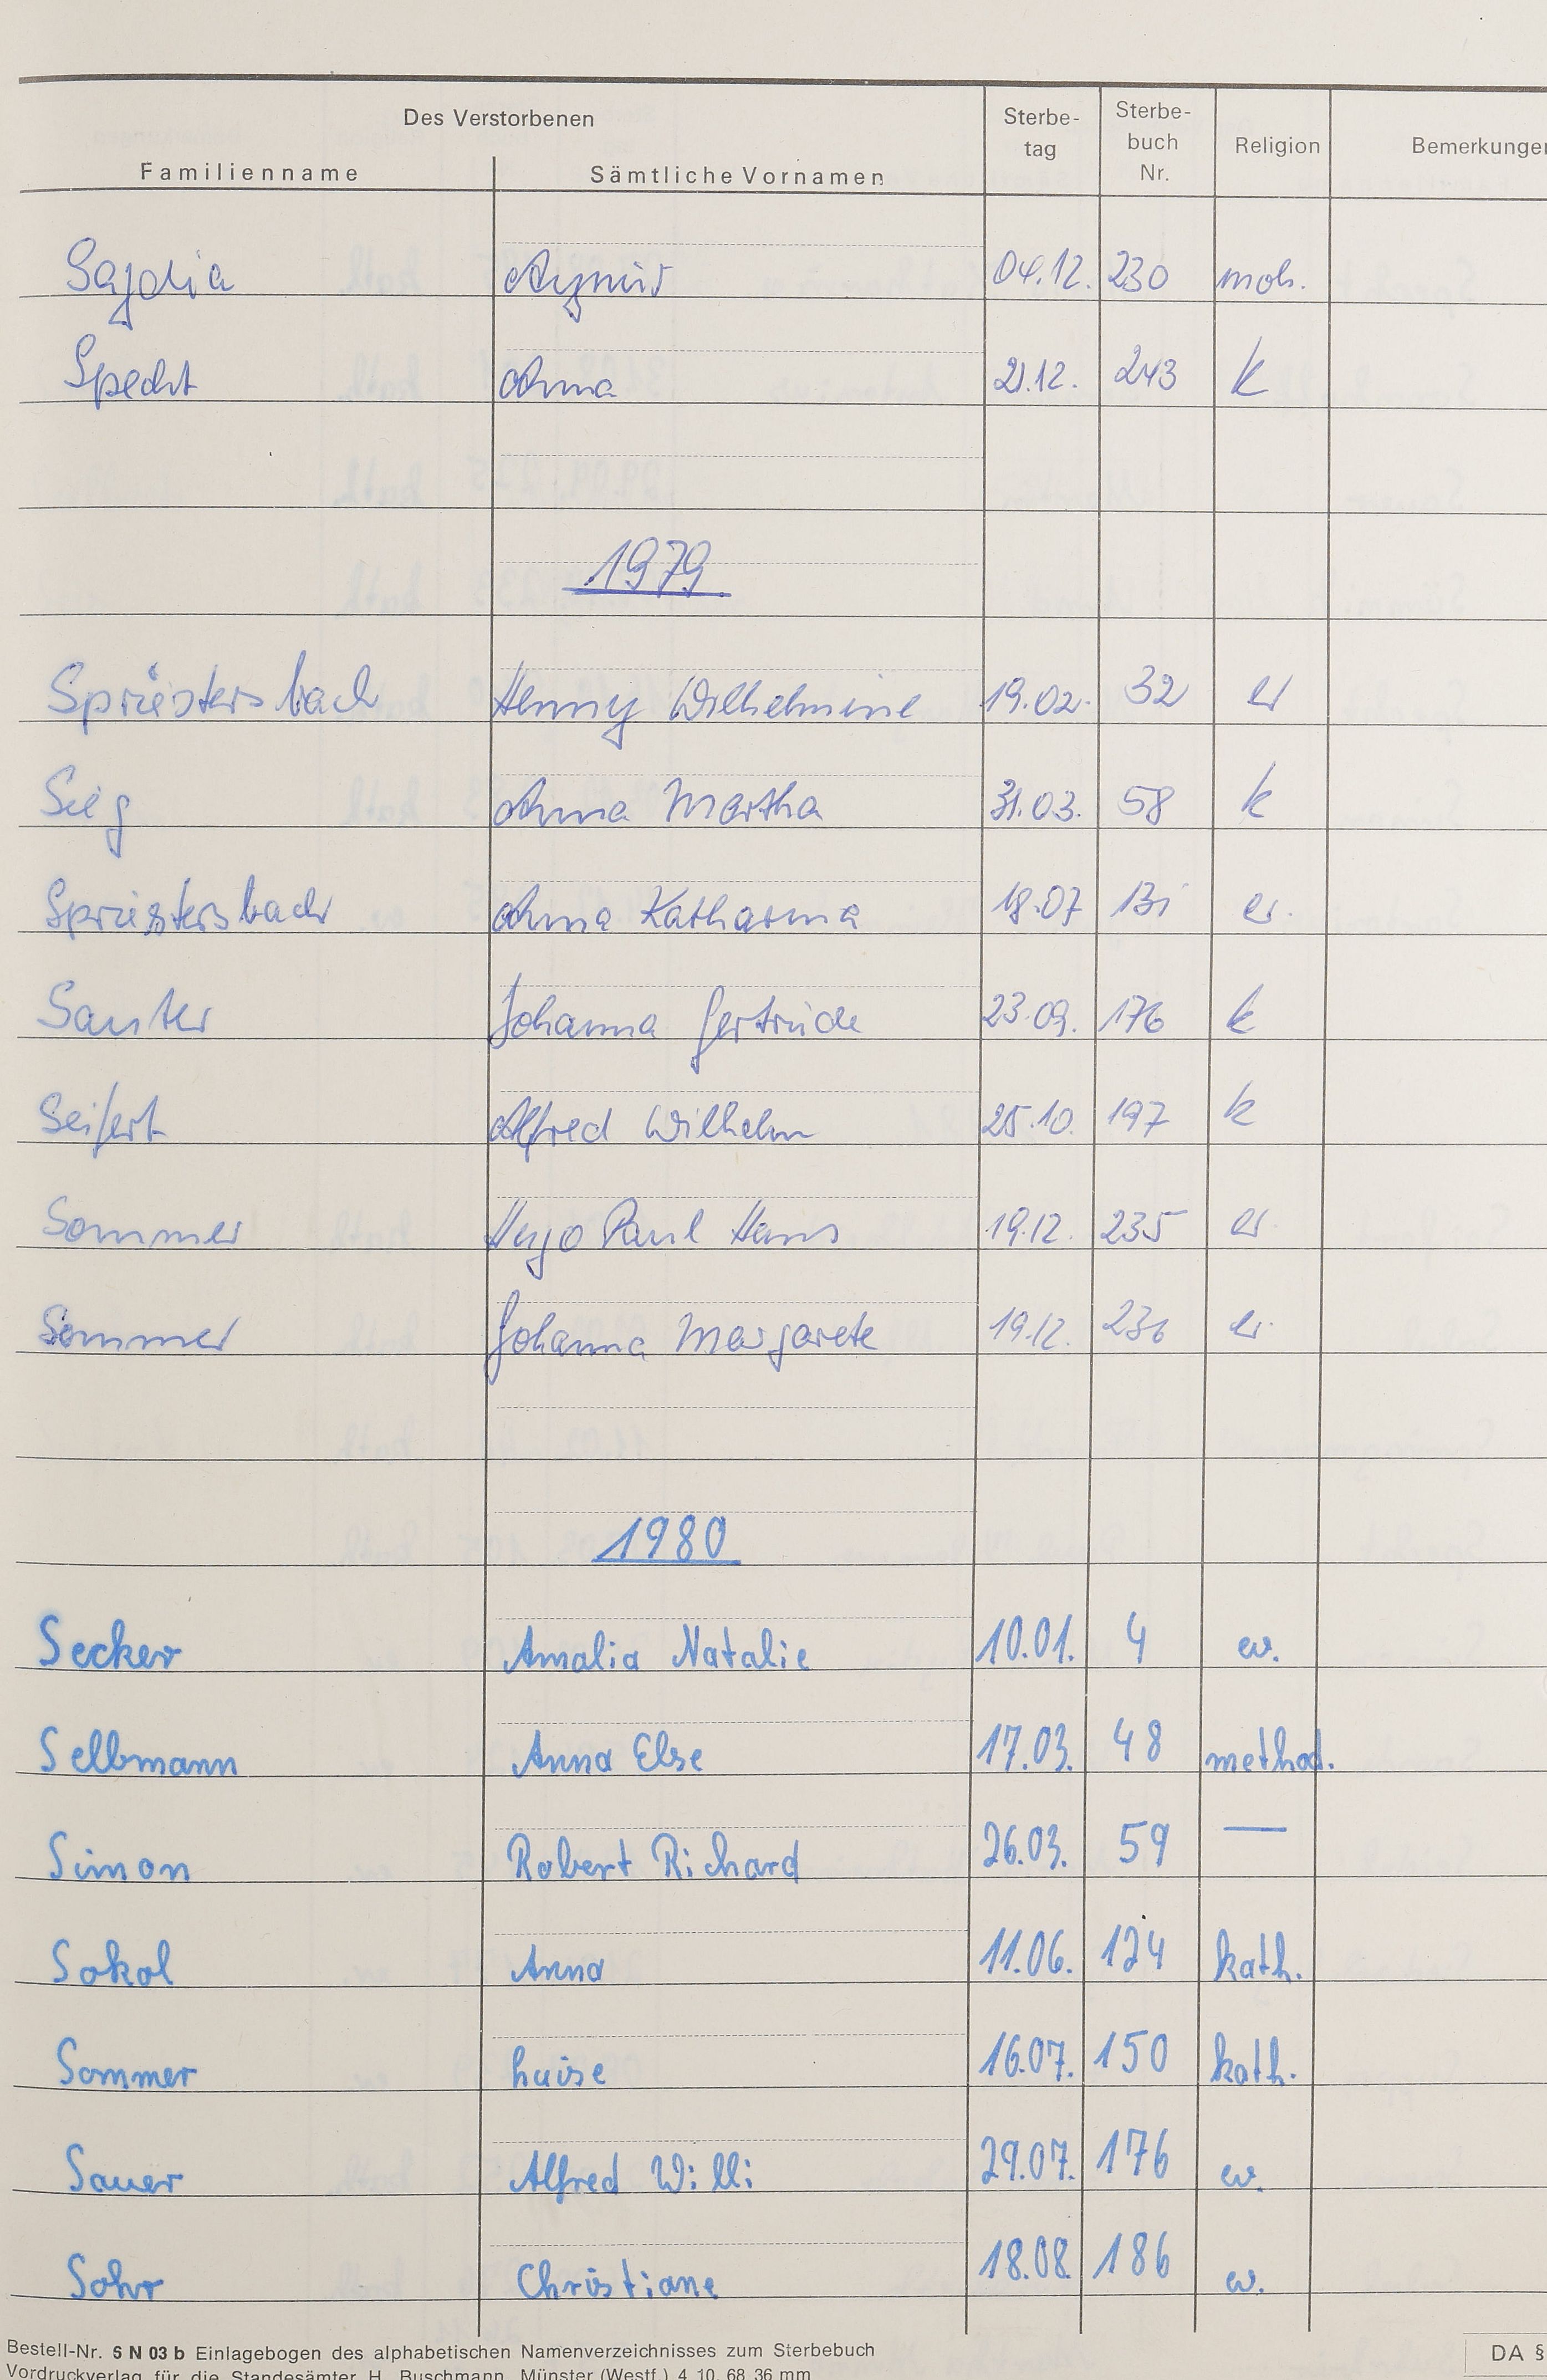 Des Verstorbenen
Familienname Sämtliche Vornamen Sterbe-tag Sterbe-buch Nr. Religion Bemerkungen
Sajdia Aynur 04.12. 230 moh.
Specht Anna 21.12. 243 k
1979
Spriestersbach Henny Wilhelmine 19.02. 32 ev
Sieg Anna Martha 31.03. 58 k
Spriestersbach Anna Katharina 18.07 131 ev.
Sauter Johanna Gertrude 23.09. 176 k
Seifert Alfred Wilhelm 25.10. 197 k
Sommer Hugo Paul Hans 19.12. 235 ev
Sommer Johanna Margarete 19.12. 236 ev.
1980
Secker Amalia Natalie 10.01. 4 ev.
Selbmann Anna Else 17.03. 48 method.
Simon Robert Richard 26.03. 59 —
Sokol Anna 11.06. 124 kath.
Sommer Luise 16.07. 150 kath.
Sauer Alfred Willi 29.07. 176 ev.
Sohr Christiane 18.08. 186 ev.
Bestell-Nr. 6 N 03 b Einlagebogen des alphabetischen Namenverzeichnisses zum Sterbebuch DA §
Vordruckverlag für die Standesämter H. Buschmann, Münster (Westf.) 4 10. 68 36 mm